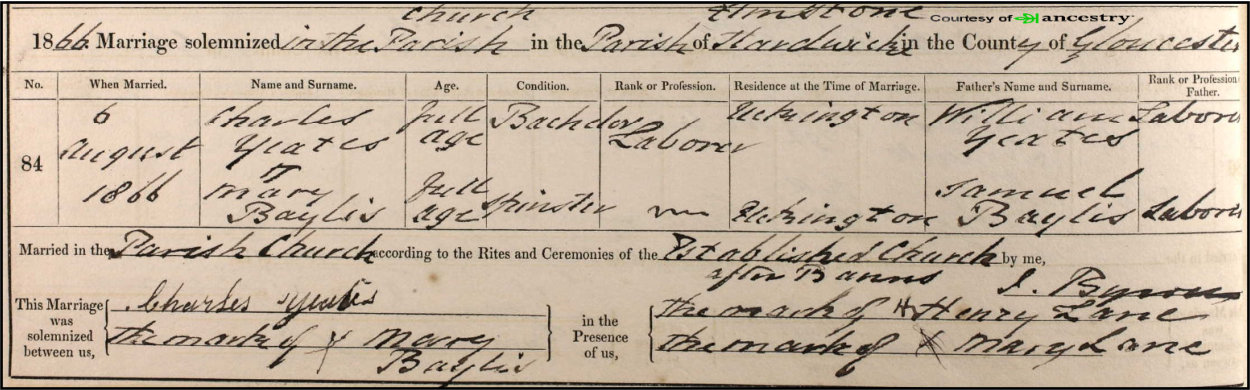 church Elmstone Courtesy of ancestry
1866. Marriage solemnized in the Parish in the Parish of Hardwicke in the County of Gloucester
No. When Married. Name and Surname. Age. Condition. Rank or Profession. Residence at the Time of Marriage. Father's Name and Surname. Rank or Profession Father.
84
6 August 1866
Charles Yeates Full age Bachelor Laborer Uckington William Yeates Labore
Mary Baylis Full age Spinster Uckington Samuel Baylis Labore
Married in the Parish Church according to the Rites and Ceremonies of the Established Church by me,
after Banns J. Byron
This Marriage was solemnized between us,
Charles Yeates
the mark of X Mary Baylis
in the Presence of us,
the mark of Henry Lane
the mark of X Mary Lane